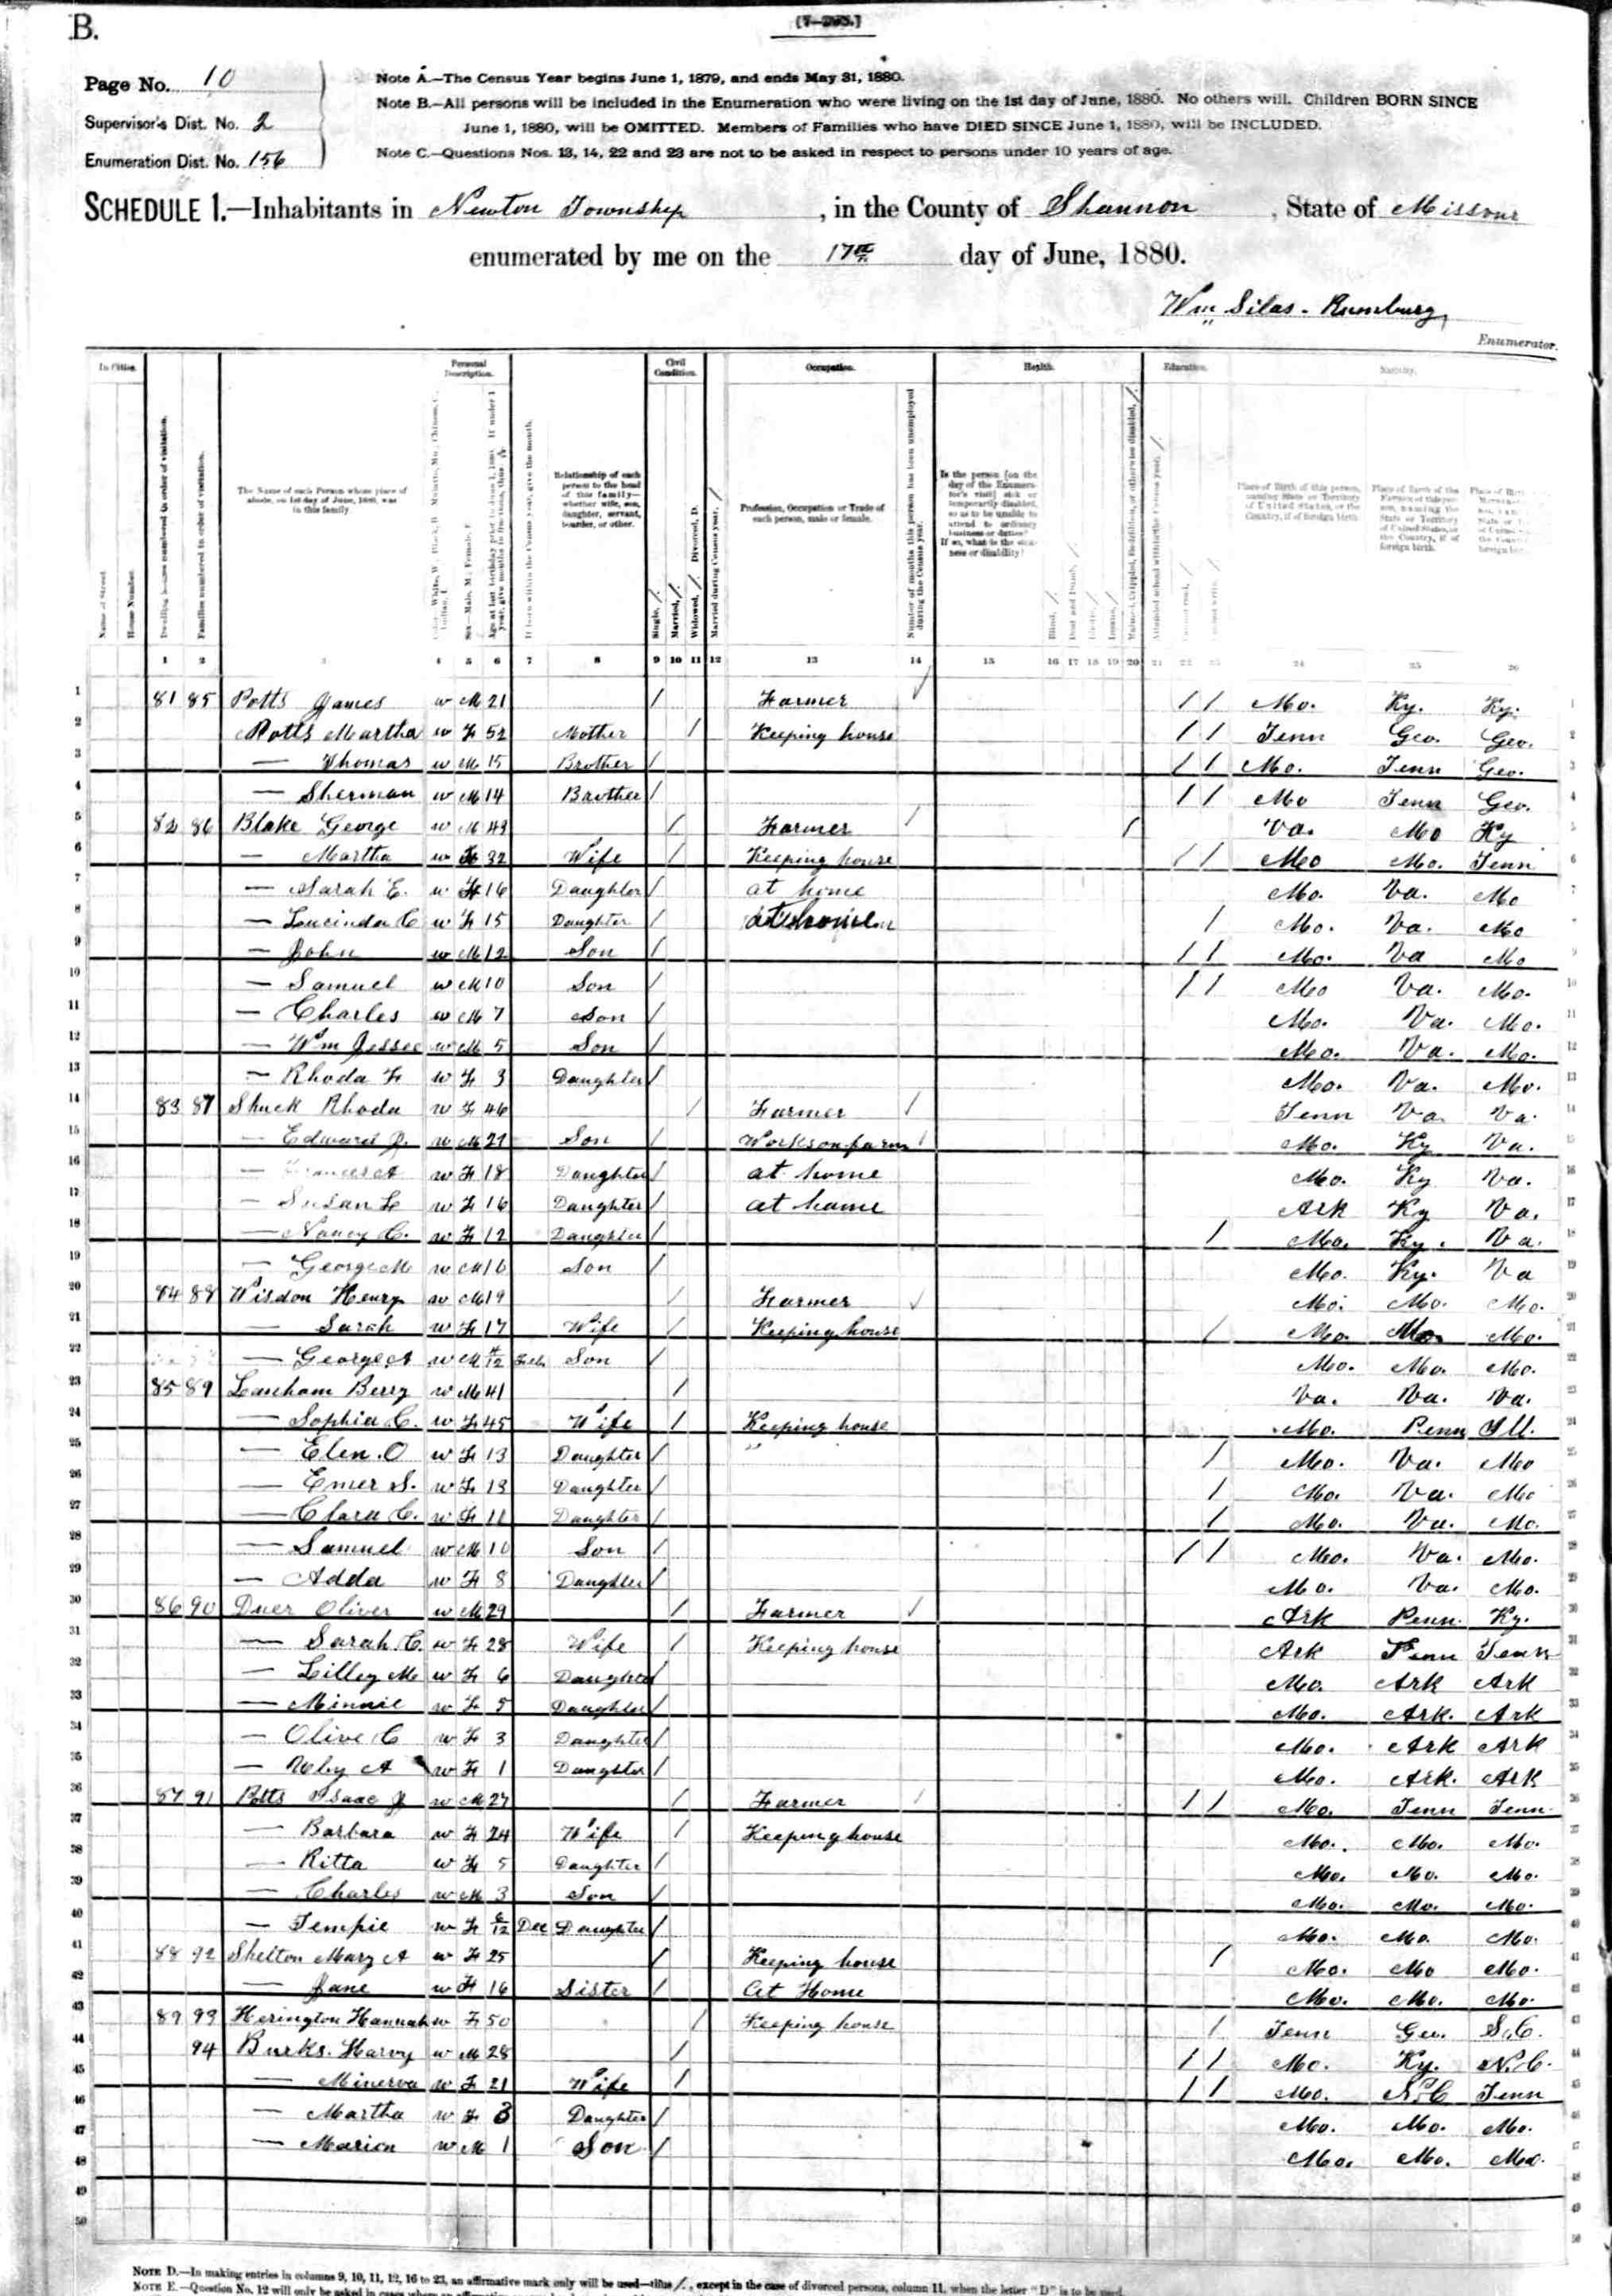 B.
Page No. 10
Supervisor's Dist. No. 2
Enumeration Dist. No. 156
Note A.—The Census Year begins June 1, 1879, and ends May 31, 1880.
Note B.—All persons will be included in the Enumeration who were living on the 1st day of June, 1880. No others will. Children BORN SINCE
June 1, 1880, will be OMITTED. Members of Families who have DIED SINCE June 1, 1880, will be INCLUDED.
Note C.—Questions Nos. 13, 14, 22 and 23 are not to be asked in respect to persons under 10 years of age.
SCHEDULE 1.—Inhabitants in Newton Township, in the County of Shannon, State of Missouri
enumerated by me on the 17th day of June, 1880.
Wm Silas Rumburg
Enumerator.
In Cities. Personal Description. Civil Condition. Occupation. Health. Education. Nativity.
The Name of each Person whose place of abode, on 1st day of June, 1880, was in this family.
Relationship of each person to the head of this family—whether wife, son, daughter, servant, boarder, or other.
Profession, Occupation or Trade of each person, male or female.
1 2 3 4 5 6 7 8 9 10 11 12 13 14 15 16 17 18 19 20 21 22 23 24 25 26
1 81 85 Potts James w M 21 / Farmer / / / Mo. Ky. Ky. 1
2 Potts Martha w F 52 Mother / Keeping house / / Tenn Geo. Geo. 2
3 — Thomas w M 15 Brother / / / Mo. Tenn Geo. 3
4 — Sherman w M 14 Brother / / / Mo Tenn Geo. 4
5 82 86 Blake George w M 49 / Farmer / / Va. Mo Ky 5
6 — Martha w F 32 Wife / Keeping house / / Mo Mo. Tenn 6
7 — Sarah E. w F 16 Daughter / at home Mo. Va. Mo 7
8 — Lucinda C w F 15 Daughter / at home / Mo. Va. Mo 8
9 — John w M 12 Son / / / Mo. Va Mo 9
10 — Samuel w M 10 Son / / / Mo Va. Mo. 10
11 — Charles w M 7 Son / Mo. Va. Mo. 11
12 — Wm Jessee w M 5 Son / Mo. Va. Mo. 12
13 — Rhoda F w F 3 Daughter / Mo. Va. Mo. 13
14 83 87 Shuck Rhoda w F 46 / Farmer / Tenn Va. Va. 14
15 — Edward J. w M 21 Son / Works on farm / Mo. Ky Va. 15
16 — w F 18 Daughter / at home Mo. Ky Va. 16
17 — Susan F w F 16 Daughter / at home Ark Ky Va. 17
18 — Nancy C. w F 12 Daughter / / Mo. Ky. Va. 18
19 — George M w M 6 Son / Mo. Ky. Va 19
20 84 88 Wisdon Henry w M 19 / Farmer / Mo. Mo. Mo. 20
21 — Sarah w F 17 Wife / Keeping house / Mo. Mo. Mo. 21
22 — George A w M 4/12 Feb Son / Mo. Mo. Mo. 22
23 85 89 Lanham Berry w M 41 / Va. Va. Va. 23
24 — Sophia C. w F 45 Wife / Keeping house Mo. Penn Ill. 24
25 — Elen. O w F 13 Daughter / / Mo. Va. Mo 25
26 — Emer S. w F 13 Daughter / / Mo. Va. Mo 26
27 — Clara C. w F 11 Daughter / / Mo. Va. Mo. 27
28 — Samuel w M 10 Son / / / Mo. Va. Mo. 28
29 — Adda w F 8 Daughter / Mo. Va. Mo. 29
30 86 90 Duer Oliver w M 29 / Farmer / Ark Penn. Ky. 30
31 — Sarah C. w F 28 Wife / Keeping house Ark Tenn Tenn 31
32 — Lilley M w F 6 Daughter / Mo. Ark Ark 32
33 — Minnie w F 5 Daughter / Mo. Ark. Ark 33
34 — Olive C w F 3 Daughter / Mo. Ark Ark 34
35 — A w F 1 Daughter / Mo. Ark. Ark 35
36 87 91 Potts Isaac J w M 27 / Farmer / / / Mo. Tenn Tenn. 36
37 — Barbara w F 24 Wife / Keeping house Mo. Mo. Mo. 37
38 — Ritta w F 5 Daughter / Mo. Mo. Mo. 38
39 — Charles w M 3 Son / Mo. Mo. Mo. 39
40 — Tempie w F 6/12 Dec Daughter / Mo. Mo. Mo. 40
41 88 92 Shelton Mary A w F 25 / Keeping house / Mo. Mo Mo. 41
42 — Jane w F 16 Sister / At Home Mo. Mo. Mo. 42
43 89 93 Herington Hannah w F 50 / Keeping house / Tenn Geo. S.C. 43
44 94 Burks. Harvy w M 28 / / / Mo. Ky. N.C. 44
45 — Minerva w F 21 Wife / / / Mo. N.C Tenn 45
46 — Martha w F 3 Daughter / Mo. Mo. Mo. 46
47 — Marion w M 1 Son / Mo. Mo. Mo. 47
48 48
49 49
50 50
NOTE D.—In making entries in columns 9, 10, 11, 12, 16 to 23, an affirmative mark only will be used—thus /, except in the case of divorced persons, column 11, when the letter "D" is to be used.